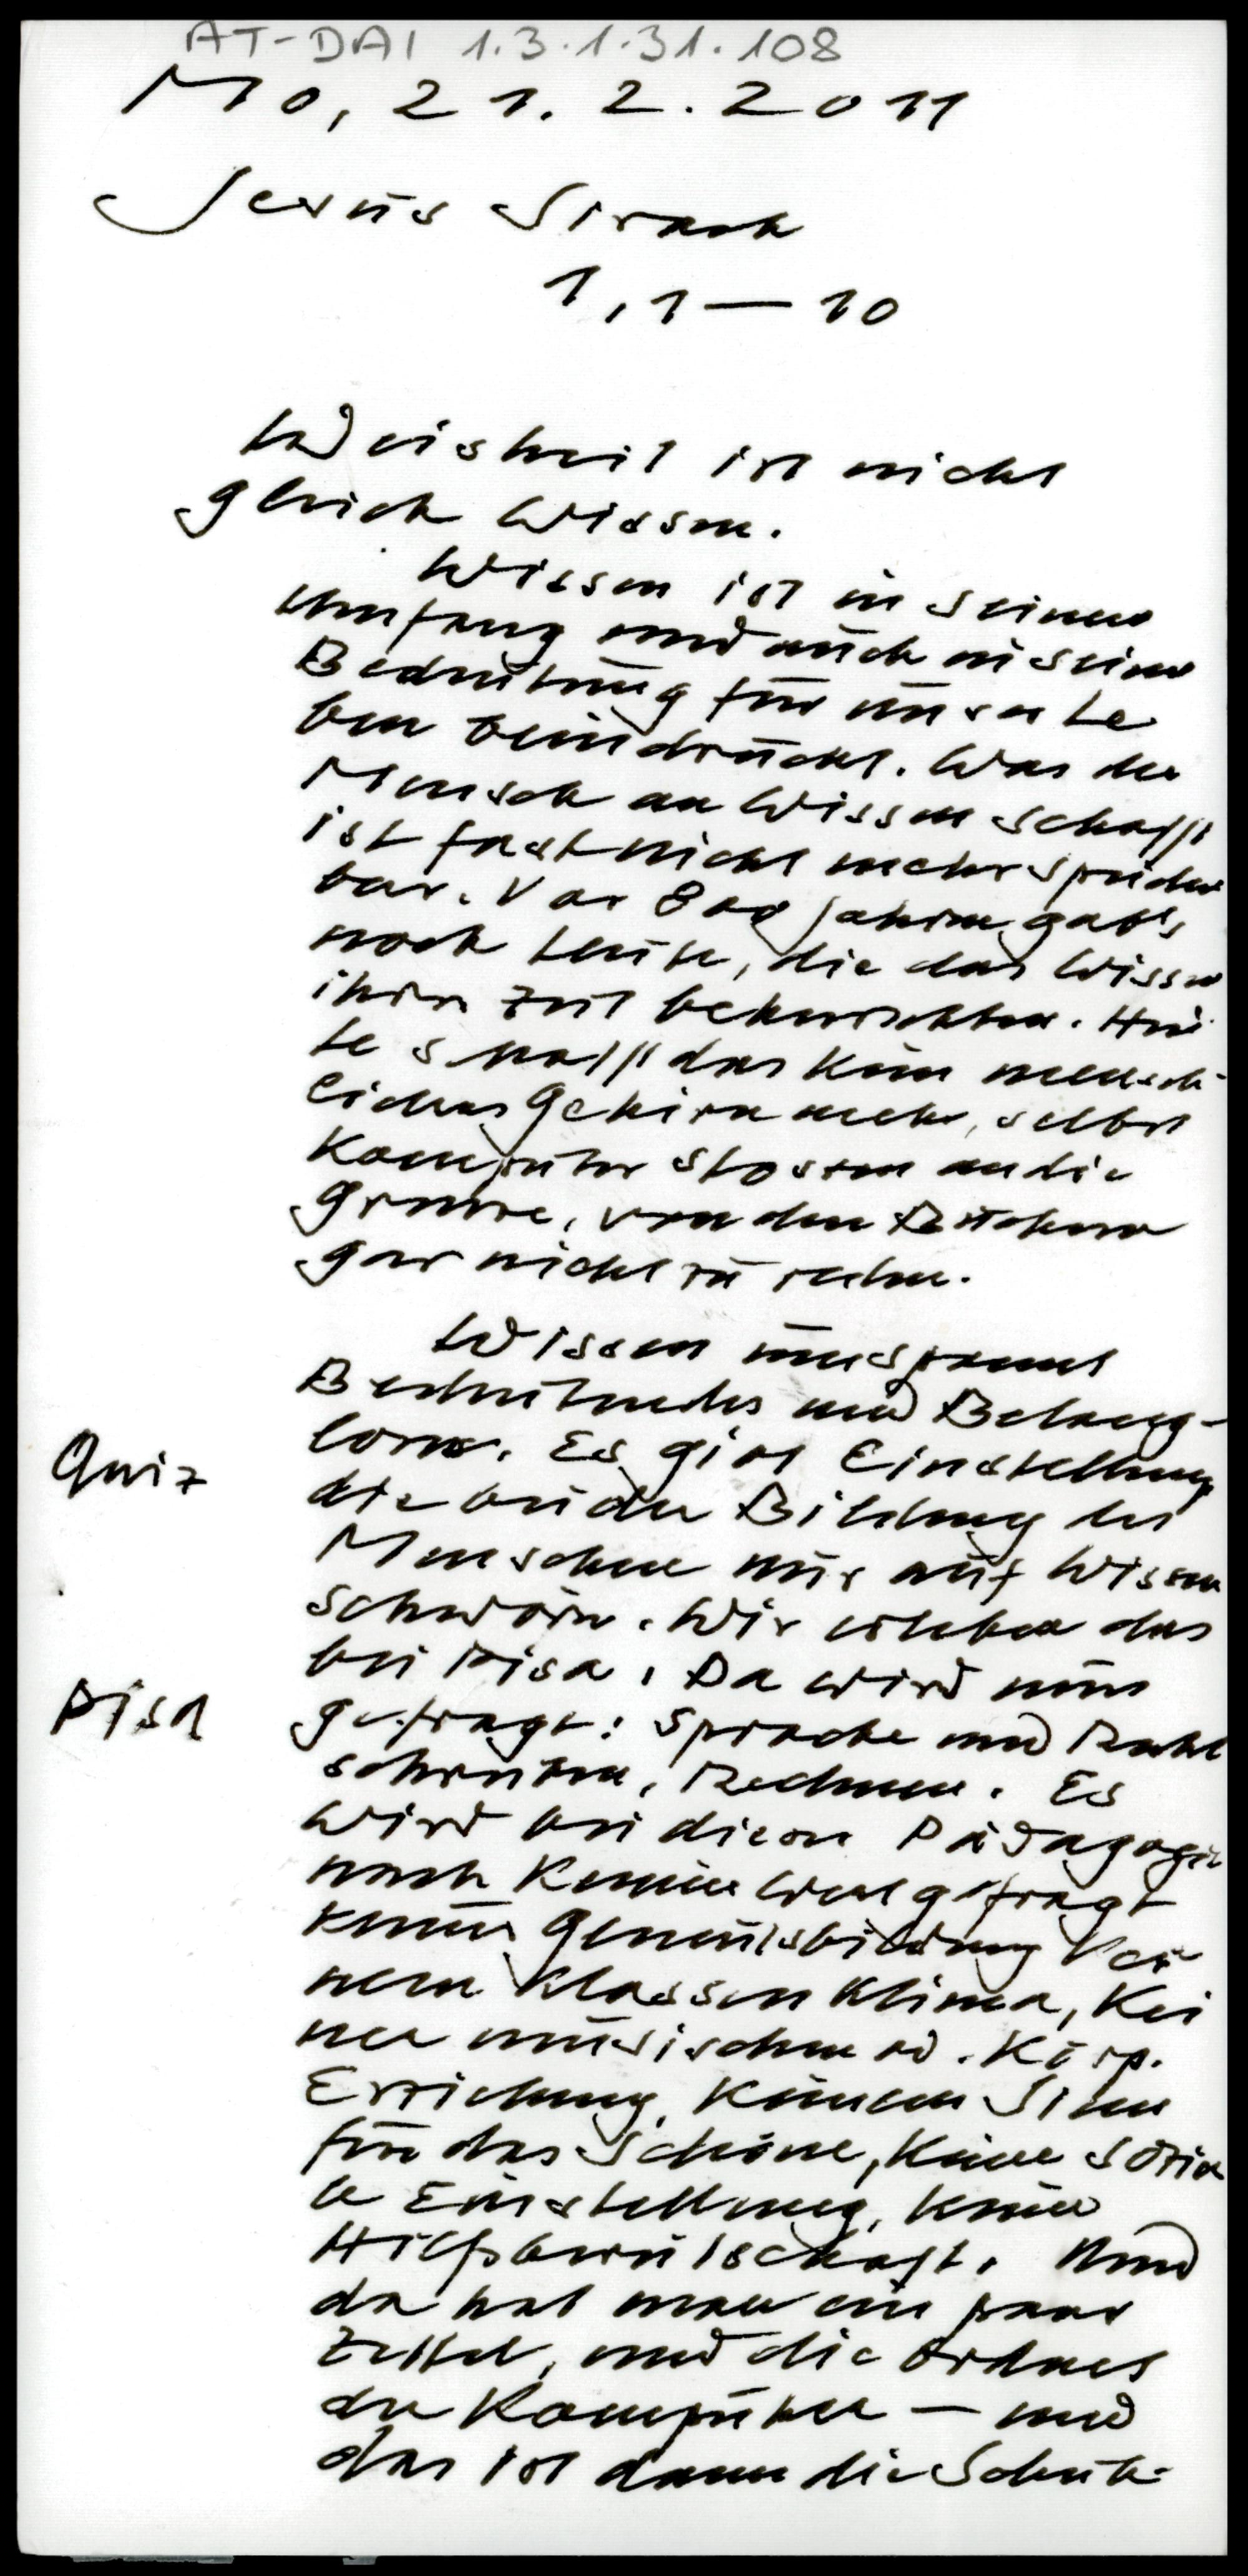 AT-DAI 1.3.1.31.108
Mo, 21.2.2011
Jesus Sirach
1,1—10
Weisheit ist nicht
gleich Wissen.
Wissen ist in seinem
Umfang und auch in seiner
Bedeutung für unser Le
ben beeindruckt. Was der
Mensch an Wissen schafft
ist fast nicht mehr speicher
bar. Vor 800 Jahren gab's
noch Leute, die das Wissen
ihrer Zeit beherrschten. Heu
te schafft das kein mensch-
liches Gehirn mehr, selbst
Komputer stossen an die
Grenze, von den Büchern
gar nicht zu reden.
Wissen umspannt
Bedeutendes und Belang-
loses. Es gibt Einstellung
Quiz
die bei der Bildung des
Menschen nur auf Wissen
schwören. Wir erleben das
bei Pisa. Da wird nur
Pisa
gefragt: Sprache und Recht
schreiben, Rechnen. Es
wird bei dieser Pädagogik
nach keinem Wert gefragt
keiner Gemütsbildung kei
nem Klassenklima, kei
ner musischen od. körp.
Erziehung, keinem Sinn
für das Schöne, keine sozia
le Einstellung, keine
Hilfsbereitschaft. Und
da hat man ein paar
Zettel, und die ordnet
der Komputer — und
das ist dann die Schule